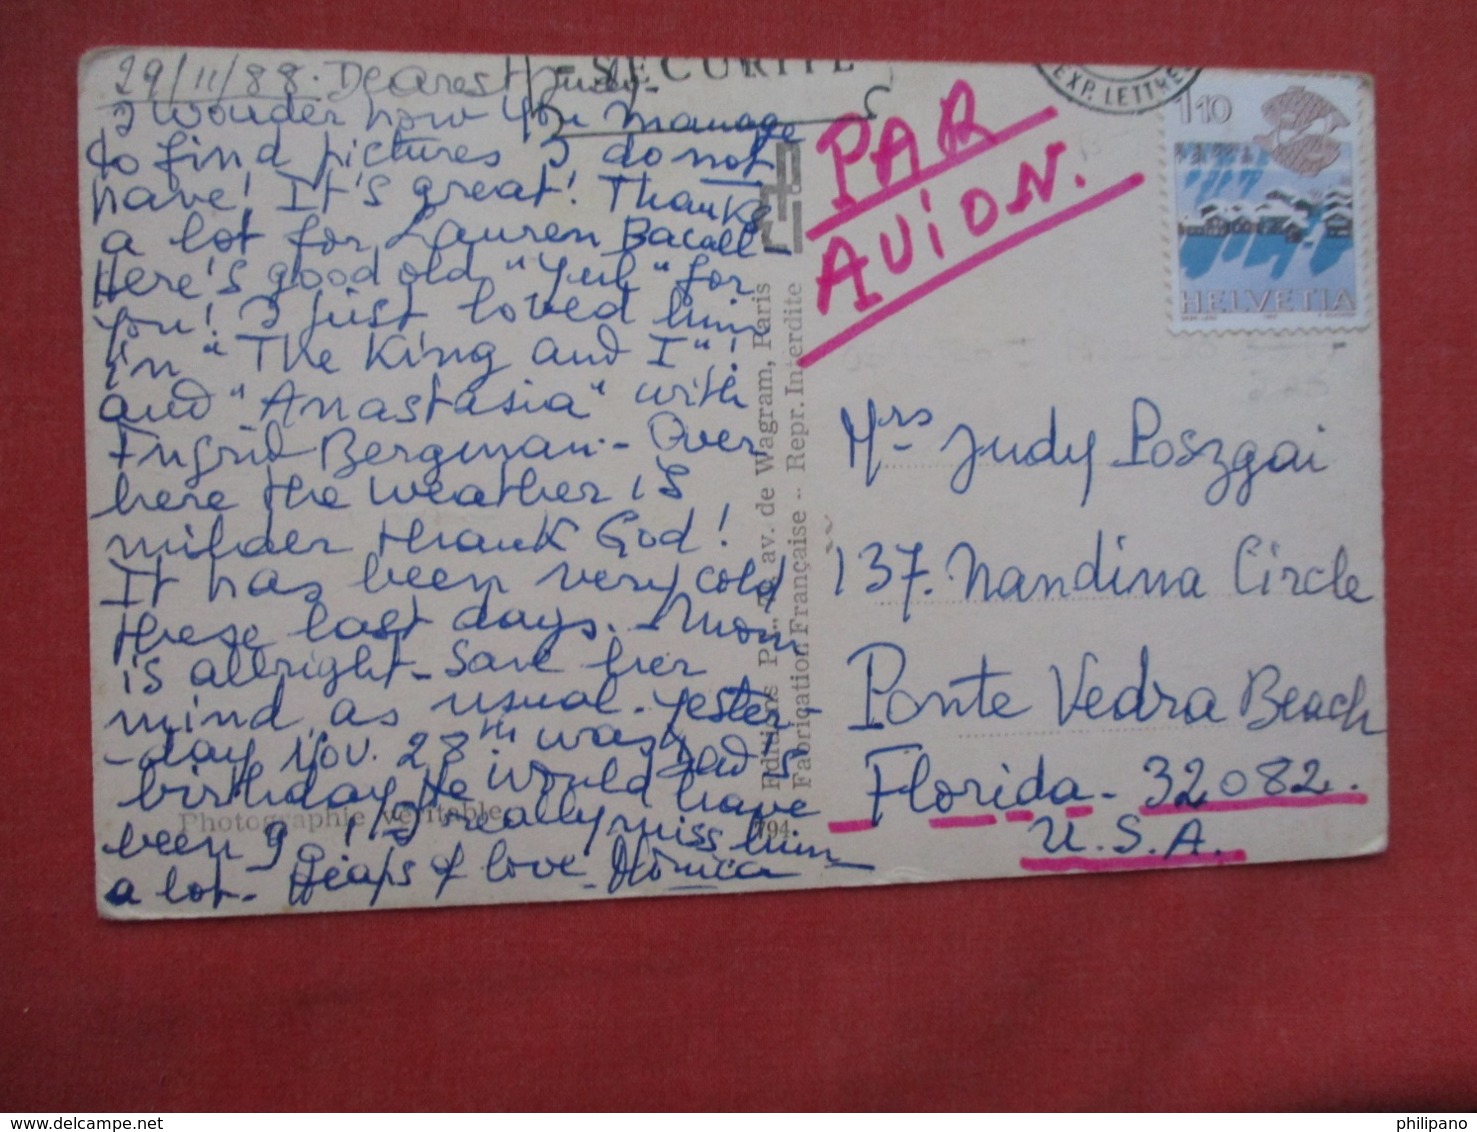 29/11/88. Dearest Judy-
I wonder how you manage
to find pictures I do not
have! It's great! Thanks
a lot for Lauren Bacall
Here's good old "Yul" for
you! I just loved him
in "The King and I"!
and "Anastasia" with
Ingrid Bergman - Over
here the weather is
milder thank God!
It has been very cold
these last days. - Mom
is allright - Same her
mind as usual. Yester-
-day Nov. 28th was Dad's
birthday. He would have
been 9 ! I really miss him
a lot - Heaps of love - Monica
SECURITE
EXP. LETTRES
PAR
AVION.
110
HELVETIA
Mrs Judy Poszgai
137. Nandina Circle
Ponte Vedra Beach
Florida - 32082.
U.S.A.
Editions P. av. de Wagram, Paris
Fabrication Française -- Repr. Interdite
Photographie véritable
794
philipano